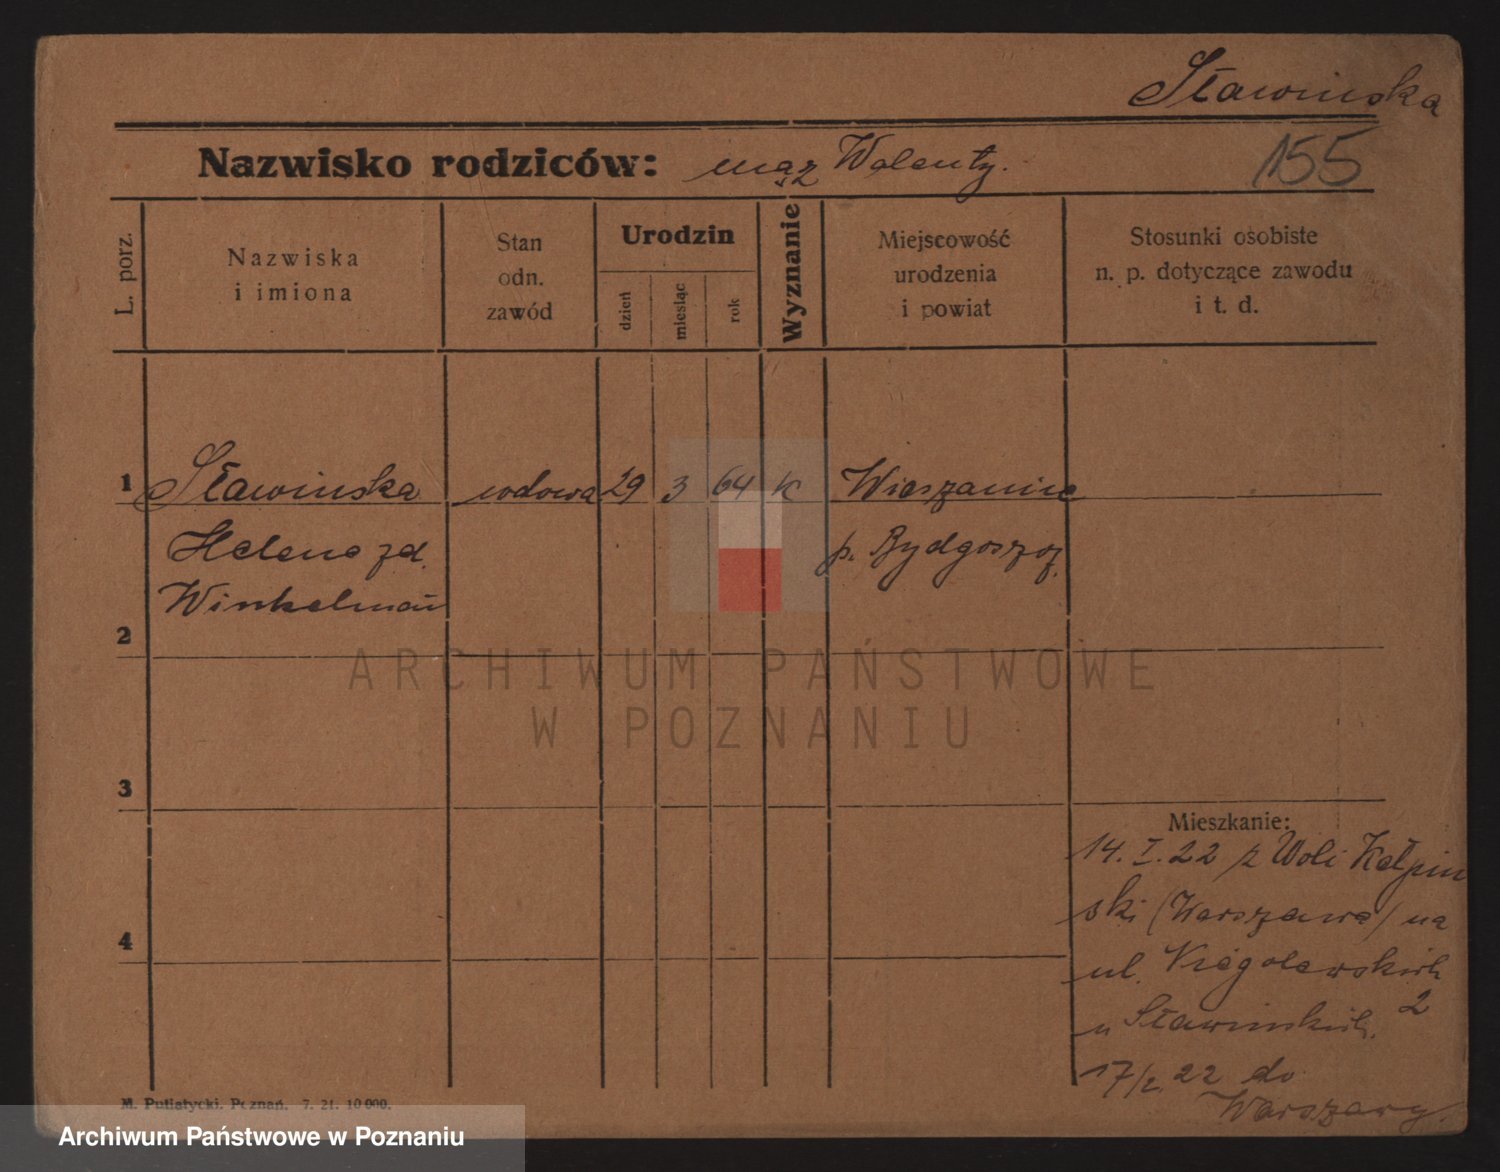 Sławinska
Nazwisko rodziców: mąż Walenty.
155
L. porz.
Nazwiska
i imiona
Stan
odn.
zawód
Urodzin
dzień
miesiąc
rok
Wyznanie
Miejscowość
urodzenia
i powiat
Stosunki osobiste
n. p. dotyczące zawodu
i t. d.
1 Sławinska wdowa 29 3 64 K
Helena zd.
p. Bydgoszcz
Winkelman
2
ARCHIWUM PAŃSTWOWE
W POZNANIU
3
Mieszkanie:
14. I. 22 z Woli Kełpin
ski (Warszawa) na
4
ul. Niegolewskich
2
u Sławinskich.
17/I. 22 do
Warszawy.
M. Putiatycki. Poznań. 7. 21. 10 000.
Archiwum Państwowe w Poznaniu